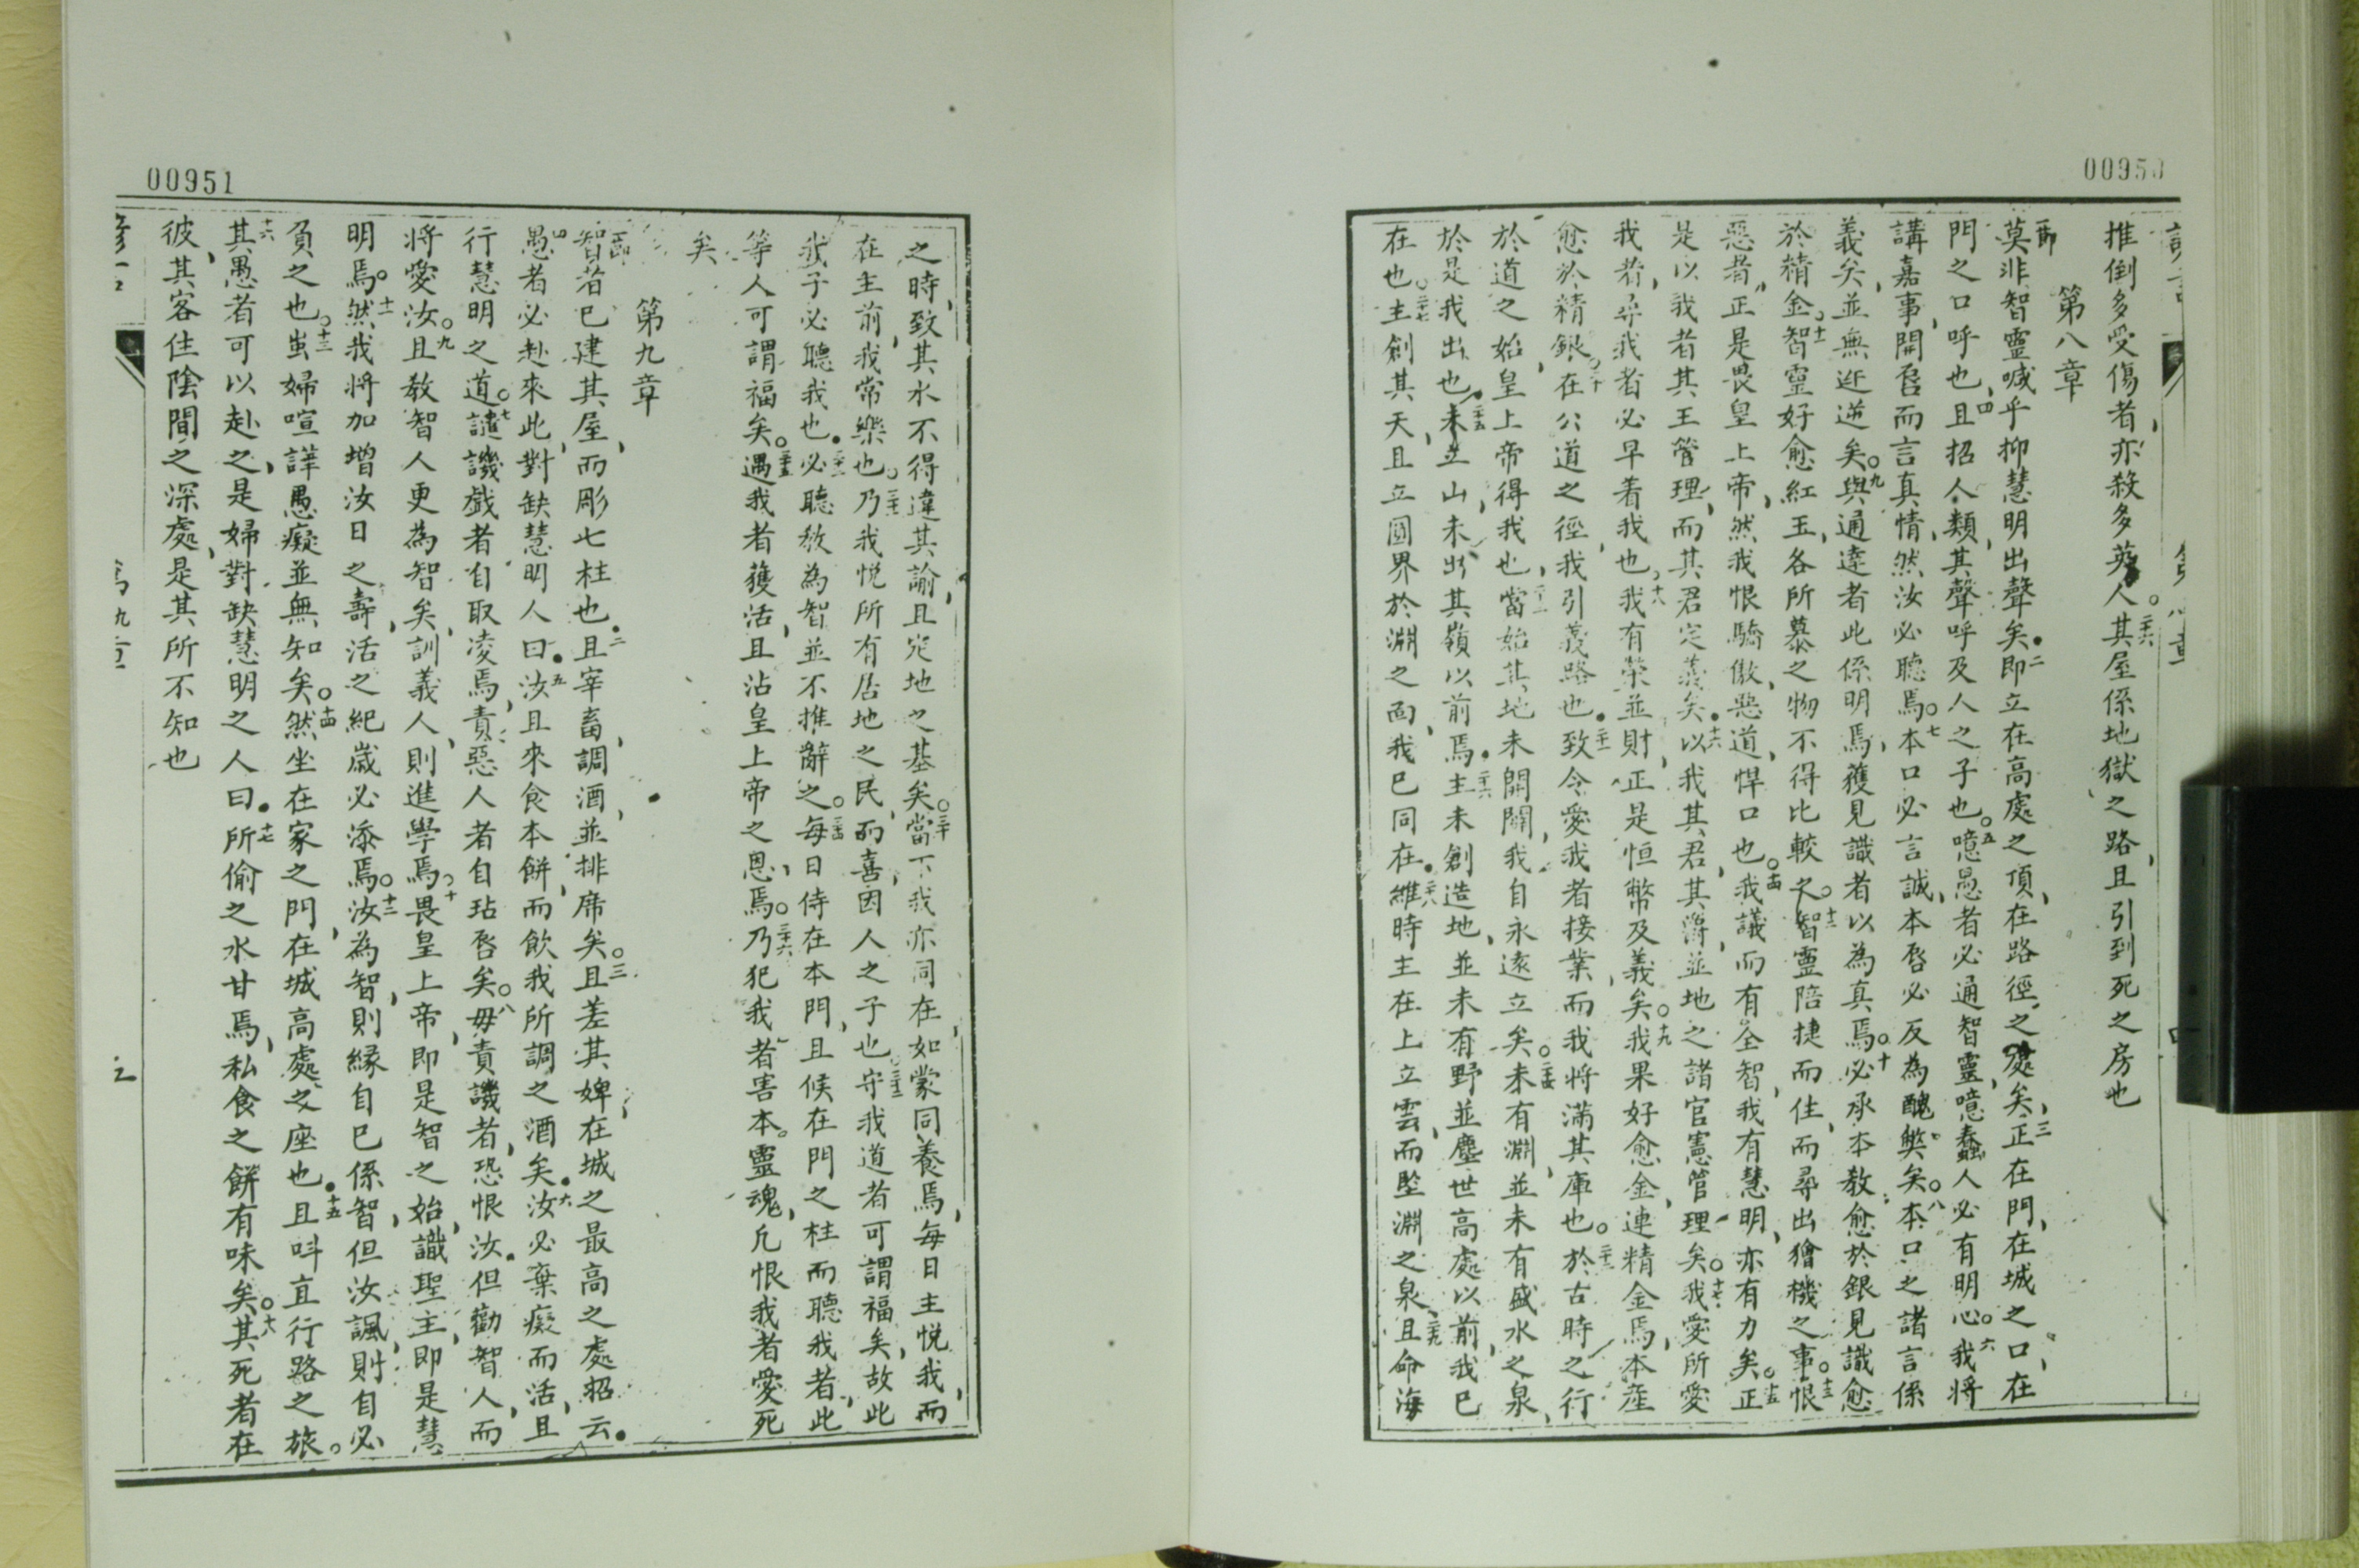 00950
推倒多受傷者亦殺多英人。二六其屋係地獄之路且引到死之房也
第八章
一節莫非智靈喊乎抑慧明出聲矣。二即立在高處之頂在路徑之處矣三正在門在城之口在
門之口呼也四且招人類其聲呼及人之子也。五噫愚者必通智靈噫蠢人必有明心。六我將
講嘉事開唇而言真情然汝必聽焉。七本口必言誠本唇必反為醜弊矣。八本口之諸言係
義矣並無逆逆矣。九與通達者此係明焉獲見識者以為真焉。十必承本教愈於銀見識愈
於精金。十一智靈好愈紅玉各所慕之物不得比較之。十二智靈陪捷而住而尋出獪機之事。十三恨
惡者正是畏皇上帝然我恨驕傲惡道悍口也。十四我議而有全智我有慧明亦有力矣。十五正
是以我者其王管理而其君定義矣。十六以我其君其爵並地之諸官憲管理矣。十七我愛所愛
我者尋我者必早着我也。十八我有榮並財正是恒幣及義矣。十九我果好愈金連精金焉本產
愈於精銀。二十在公道之徑我引義路也。二一致令愛我者接業而我將滿其庫也。二二於古時之行
於道之始皇上帝得我也。當始其地未開闢我自永遠立矣。二四未有淵並未有盛水之泉
於是我出也。二五未立山未出其嶺以前焉。二六主未創造地並未有野並塵世高處以前我已
在也。二七主創其天且立圓界於淵之面我已同在。二八維時主在上立雲而堅淵之泉。二九且命海
00951
之時致其水不得違其諭且定地之基矣。三十當下我亦同在如蒙同養焉每日主悅我而
在主前我常樂也。三一乃我悅所有居地之民而喜因人之子也。三二守我道者可謂福矣故此
我子必聽我也。三三必聽教為智並不推辭之。三四每日侍在本門且候在門之柱而聽我者此
等人可謂福矣。三五遇我者獲活且沾皇上帝之恩焉。三六乃犯我者害本靈魂凡恨我者愛死
矣
第九章
一節智者已建其屋而彫七柱也。二且宰畜調酒並排席矣。三且差其婢在城之最高之處招云。
四愚者必赴來此對缺慧明人曰。五汝且來食本餅而飲我所調之酒矣。六汝必棄癡而活且
行慧明之道。七譴譏戲者自取凌焉責惡人者自玷唇矣。八毋責譏者恐恨汝但勸智人而
將愛汝。九且教智人更為智矣訓義人則進學焉。十畏皇上帝即是智之始識聖主即是慧
明焉。十一然我將加增汝日之壽活之紀歲必添焉。十二汝為智則緣自己係智但汝諷則自必
負之也。十三蚩婦喧譁愚癡並無知矣。十四然坐在家之門在城高處之座也。十五且叫直行路之旅。
十六其愚者可以赴之是婦對缺慧明之人曰。十七所偷之水甘焉私食之餅有味矣。十八其死者在
彼其客住陰間之深處是其所不知也